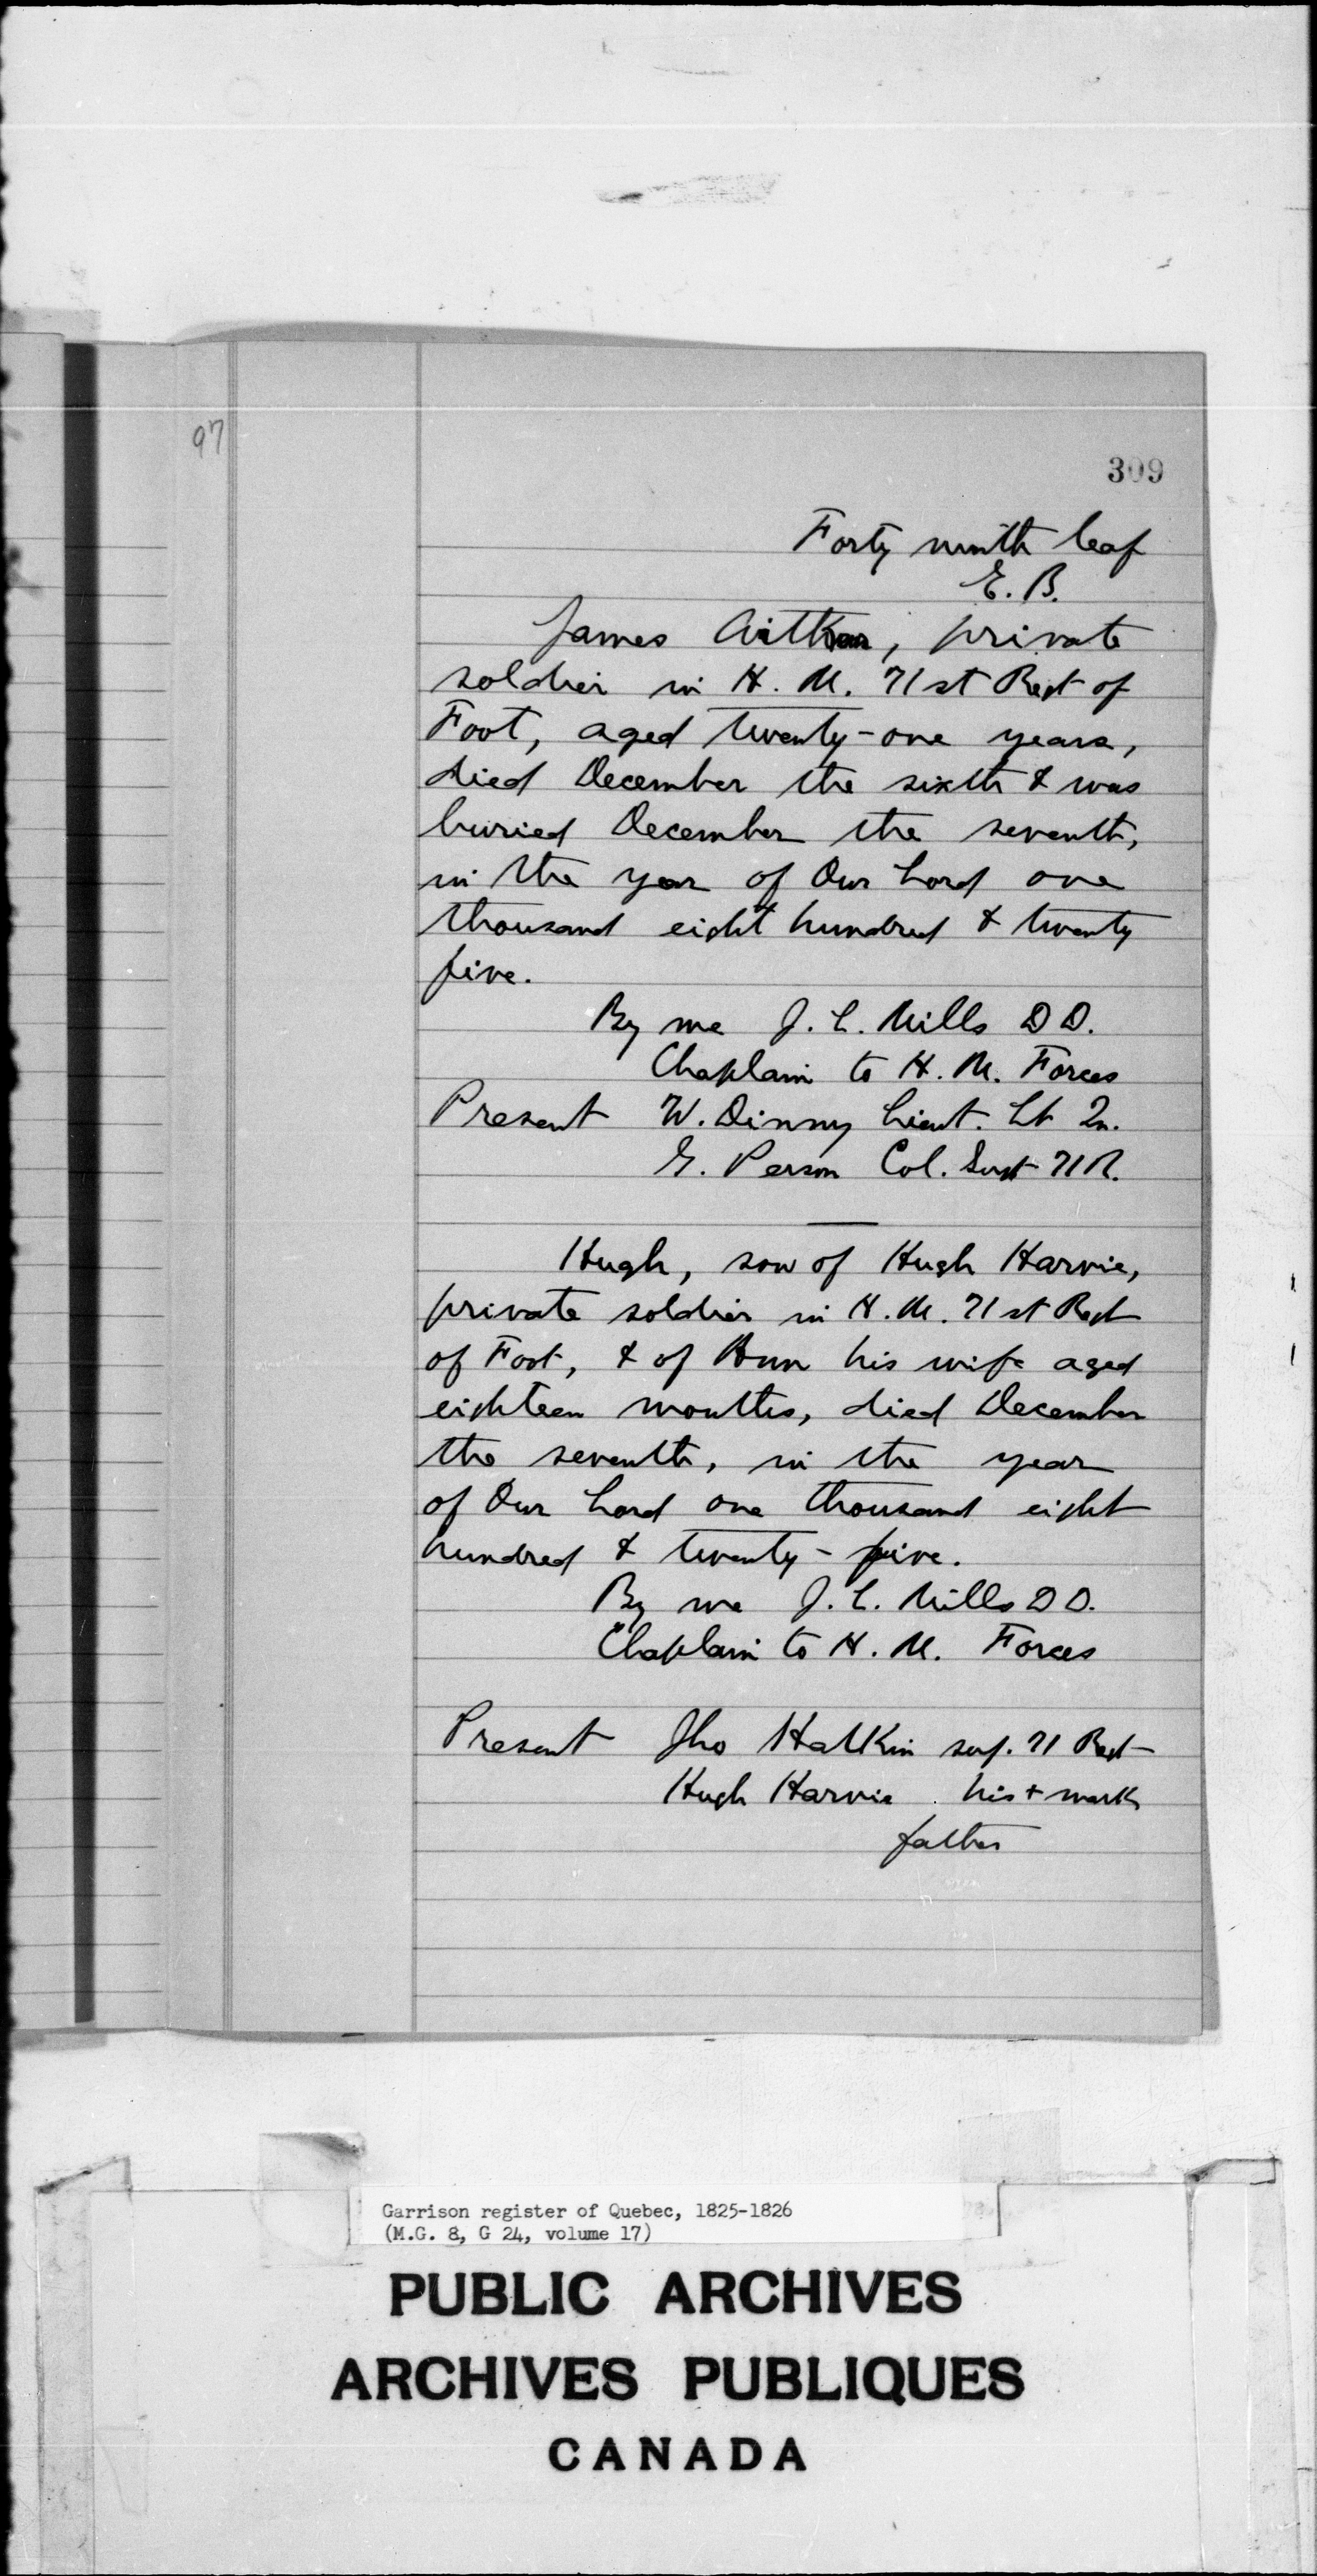 97
309
Forty ninth leaf
E. B.
James Aitken, private
soldier in H. M. 71st Regt of
Foot, aged twenty-one years,
died December the sixth & was
buried December the seventh,
in the year of Our Lord one
thousand eight hundred & twenty
five.
By me J. L. Mills D D.
Chaplain to H. M. Forces
Present W. Dinny Lieut.
G. Person Col. Sergt 71 R.
Hugh, son of Hugh Harvie,
private soldier in H. M. 71st Regt
of Foot, & of Ann his wife aged
eighteen months, died December
the seventh, in the year
of Our Lord one thousand eight
hundred & twenty-five.
By me J. L. Mills D D.
Chaplain to H. M. Forces
Present Jno 71 Regt
Hugh Harvie his + mark
father
Garrison register of Quebec, 1825-1826
(M.G. 8, G 24, volume 17)
PUBLIC ARCHIVES
ARCHIVES PUBLIQUES
CANADA